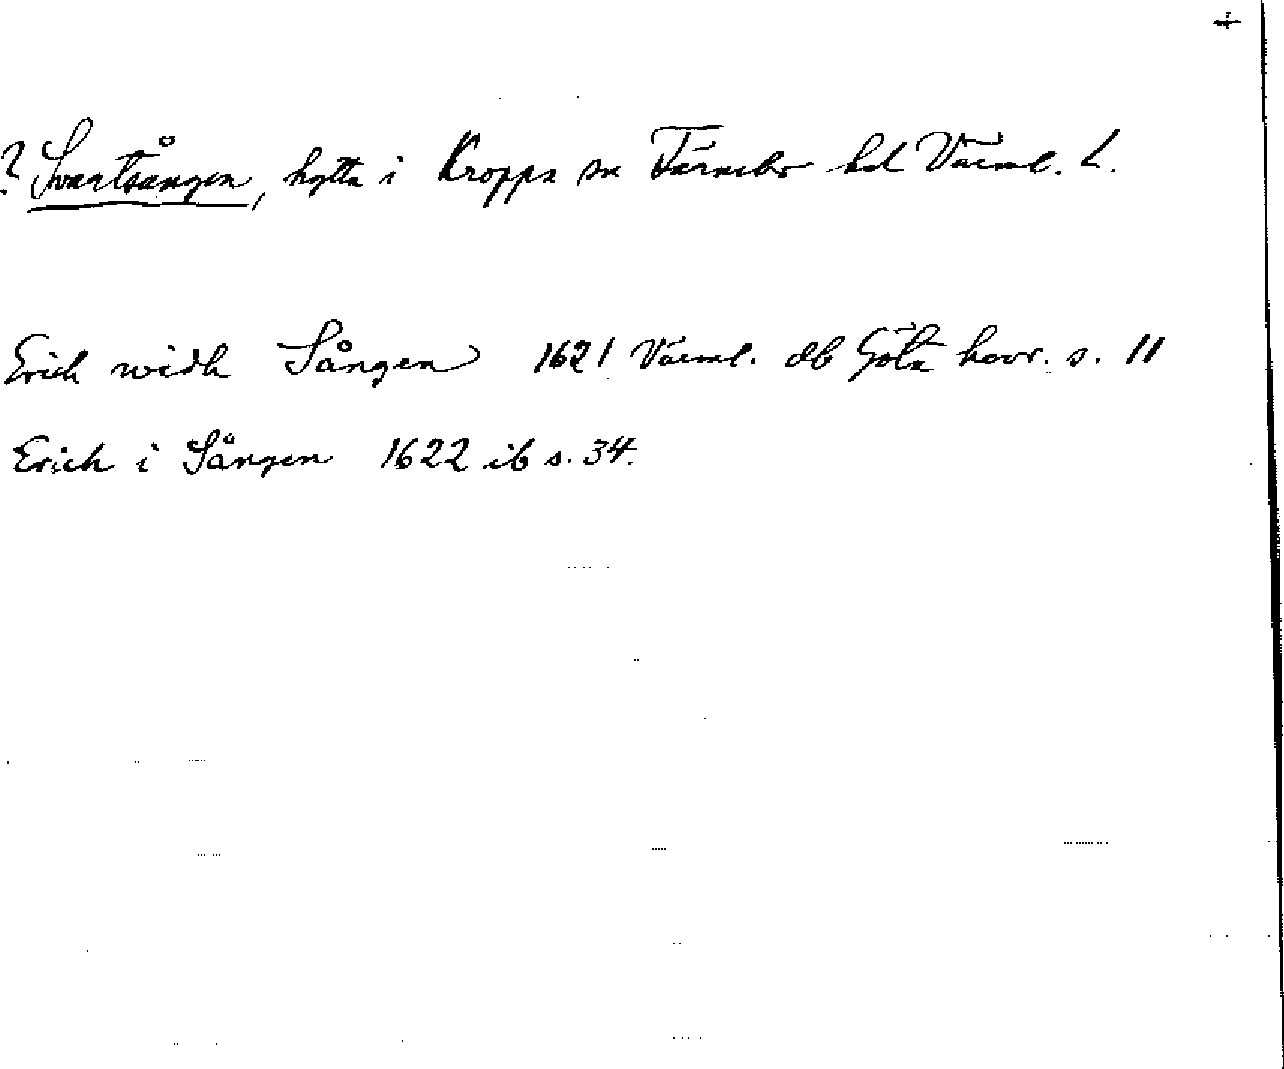 +
? Svartsången, hytta i Kroppa sn Färnebo hd Värml. L.
Erich widh Sången 1621 Värml. db Göta hovr. s. 11
Erich i Sången 1622 ib s. 34.